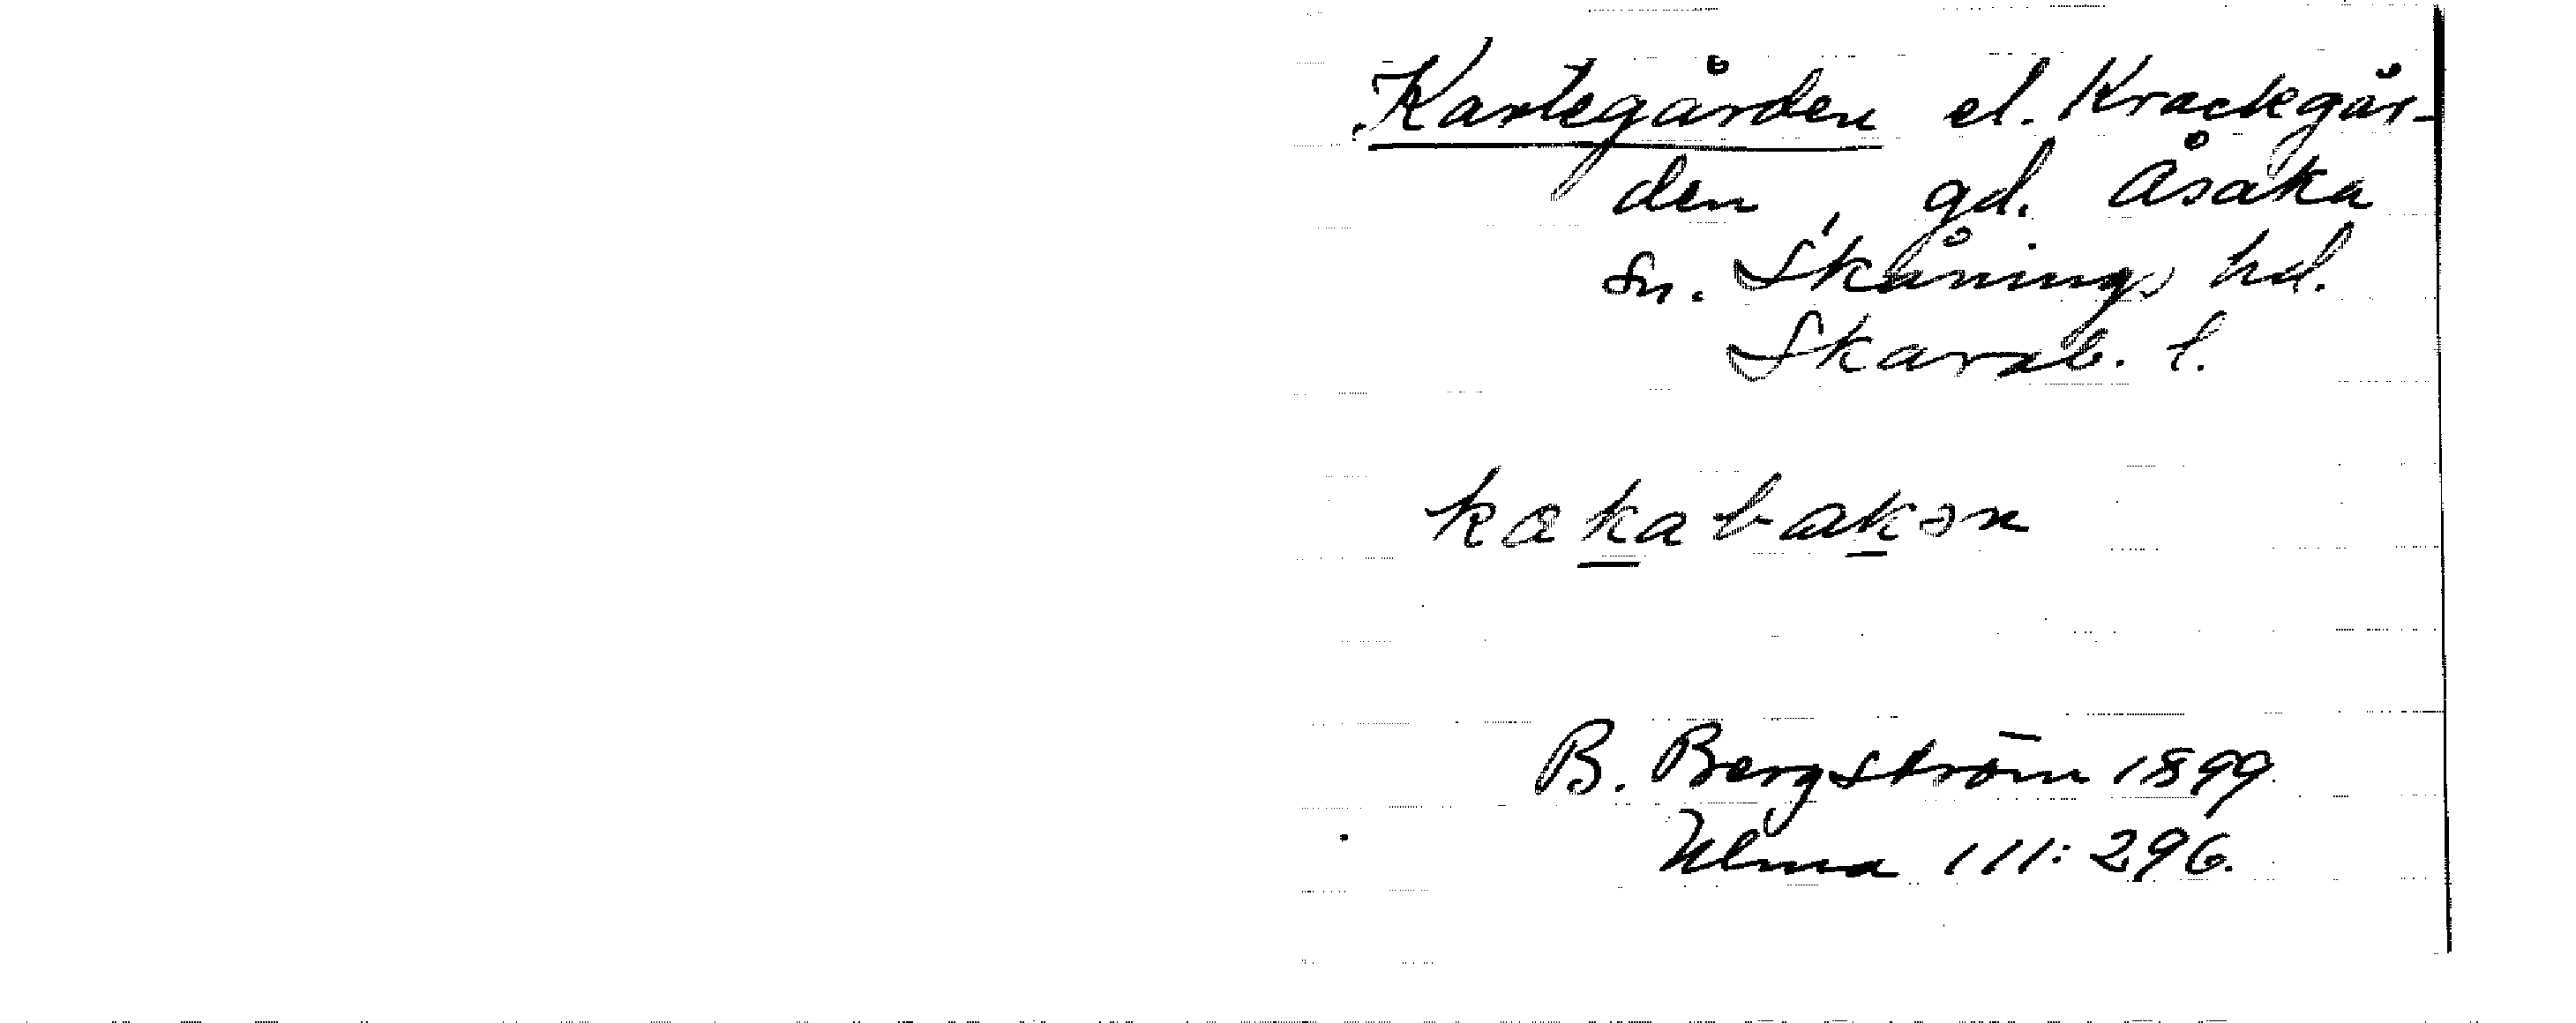 Kartegården el. Krackgår-
den, gd. Åsaka
sn. Skånings hd.
Skarab. l.
kakabakən
B. Bergström 1899
Ulma 111:296.